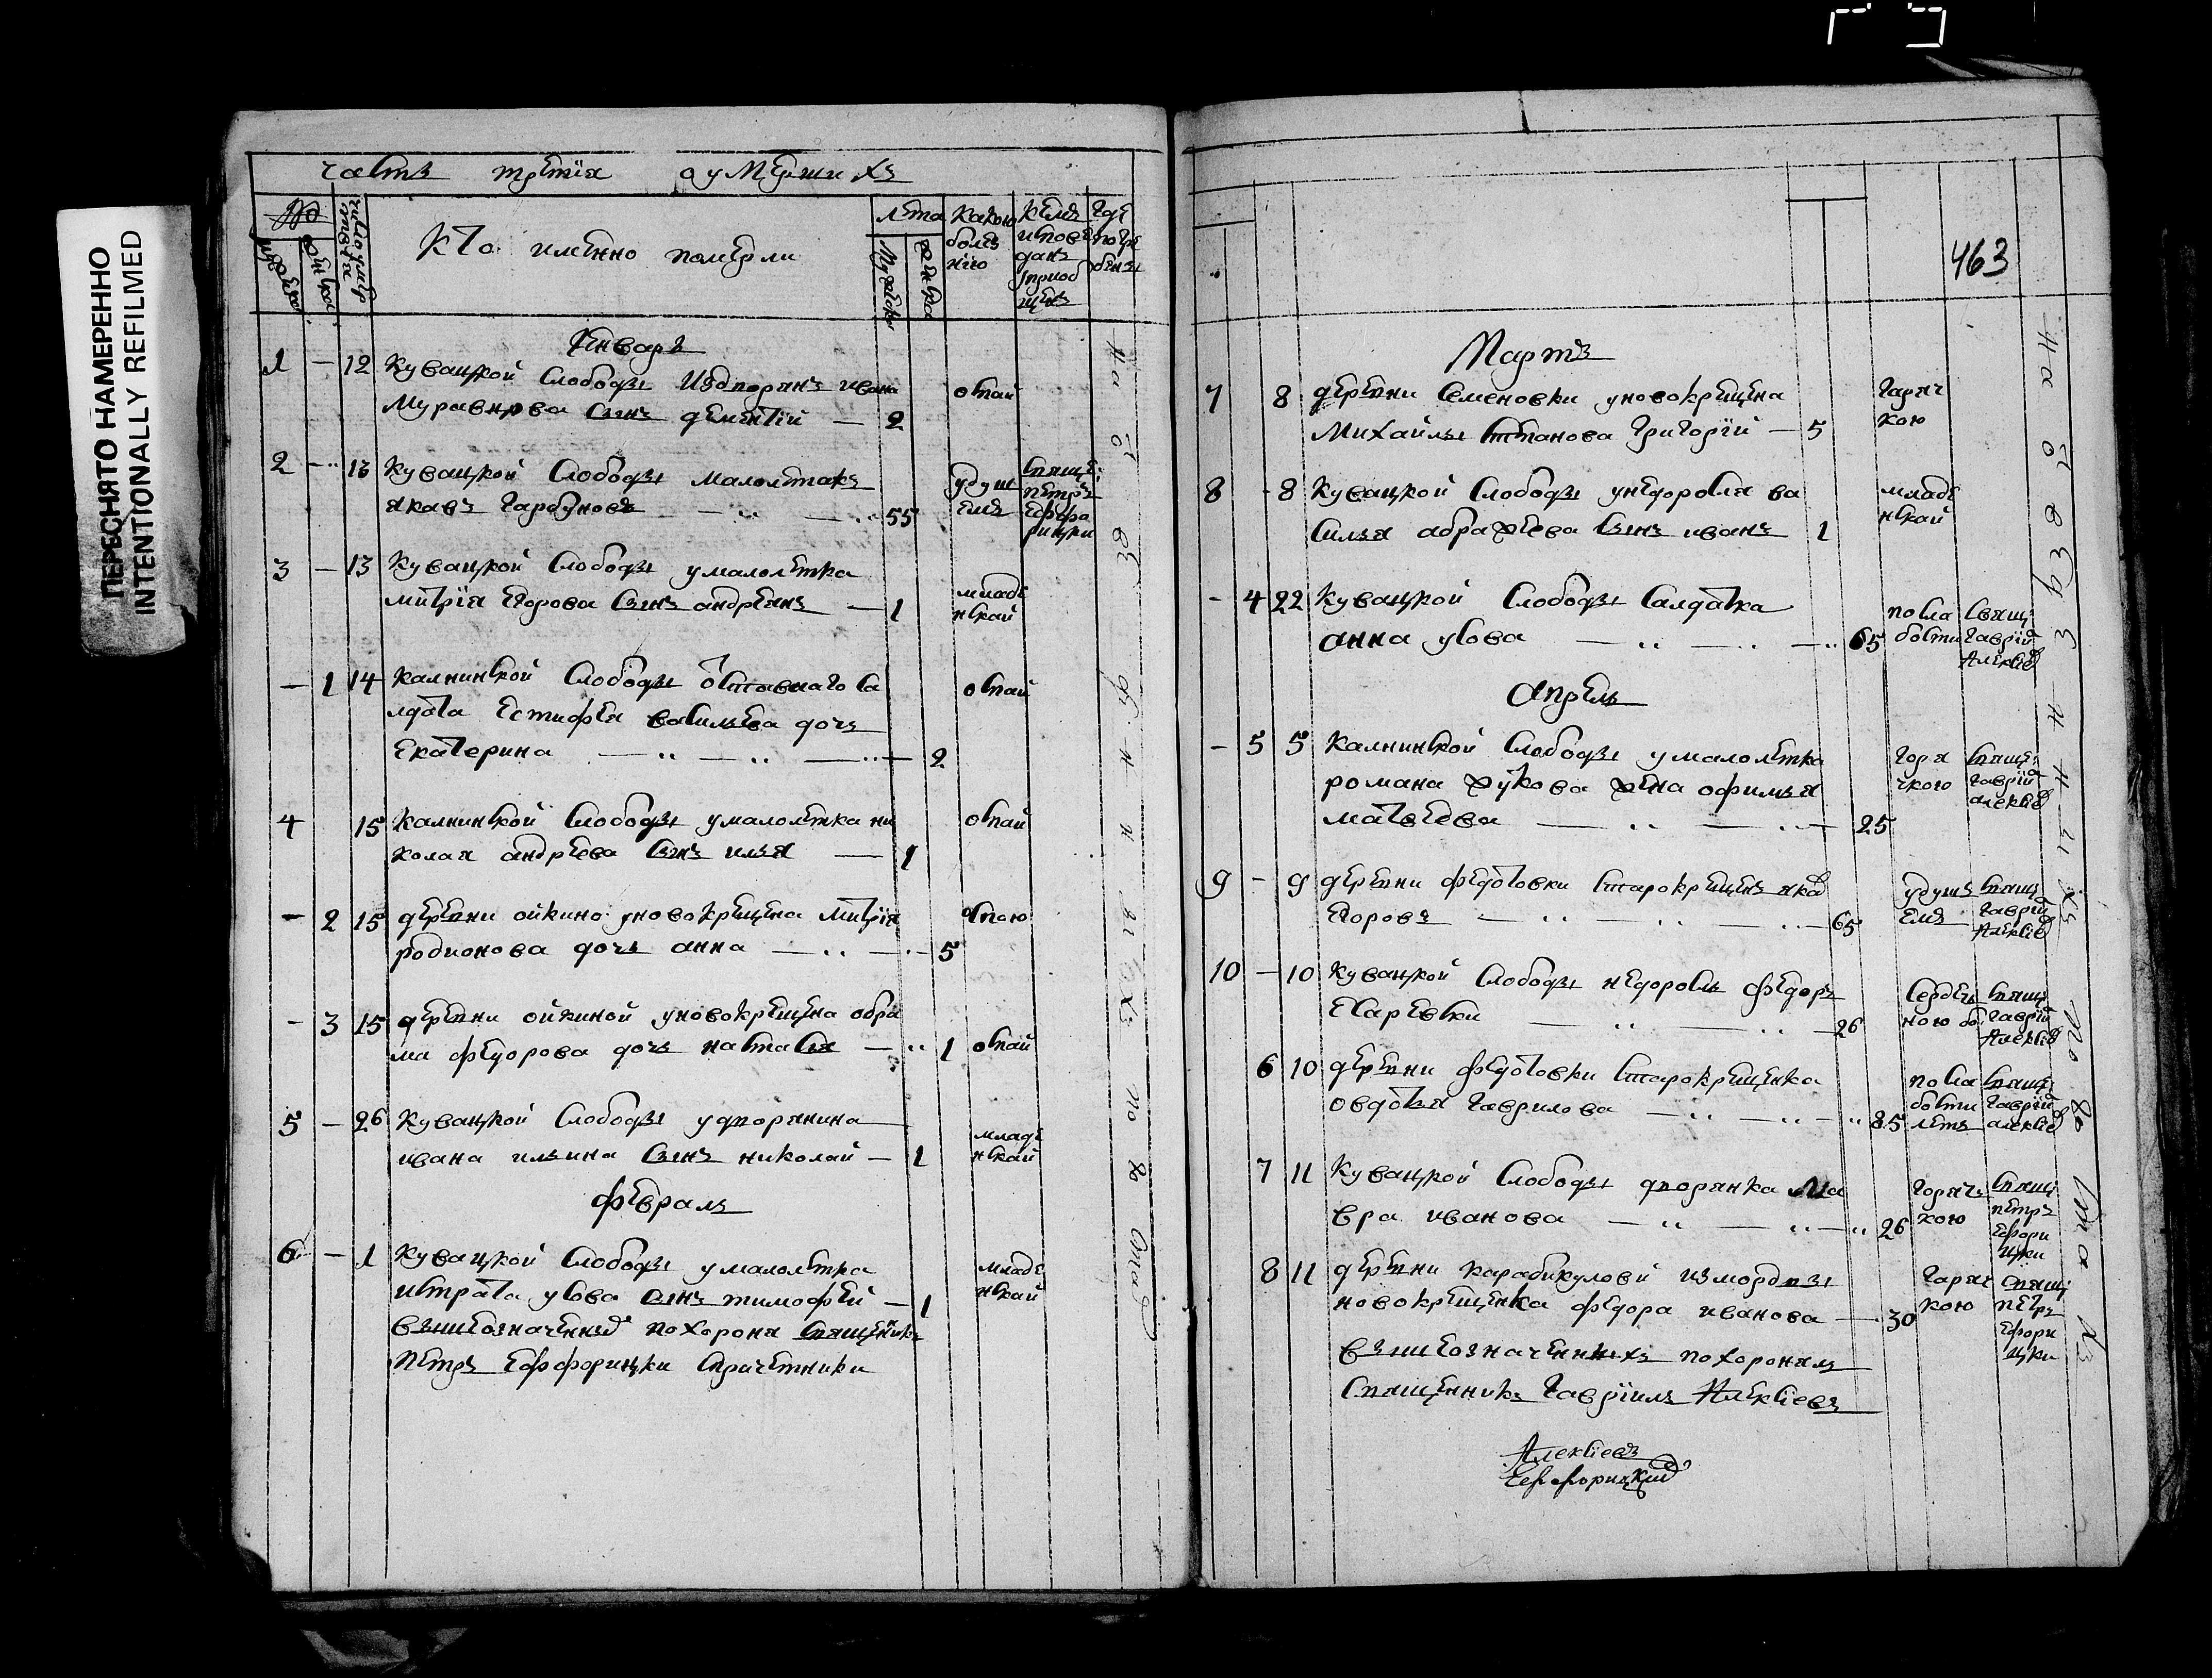 ПЕРЕСНЯТО НАМЕРЕННО
INTENTIONALLY REFILMED
часть третїя оумерших
№
кто именно померли
лета
какою
болез
нїю
кем
испове
дан
приоб
щен
где
погре
бены
Январь
1 — 12 Кувацкой слободы из дворян ивана
сын дементїй — 2
оспой
2 — 13 Кувацкой слободы малолетакъ
яковъ гарбуновъ — 55
удуш
емъ
свяще:
петръ
3 — 13 Кувацкой слободы у малолетка
митрїя егорова сынъ андреянъ — 1
младе
нской
— 1 14 Калнинской слободы отставнаго са
лдата естифея васильева дочь
екатерина — 2
оспай
4 15 Калнинской слободы у малолетка ни
колая андреева сынъ илья — 1
оспай
— 2 15 деревни ойкино у новокрещена митрїя
родионова дочь анна — 5
оспою
— 3 15 деревни ойкиной у новокрещена обра
ма федорова дочь настасья — 1
оспай
5 — 26 Кувацкой слободы у дворянина
ивана ильина сынъ николай — 1
младе
нской
февраль
6 — 1 Кувацкой слободы у малолетка
истрата усова сынъ тимофей — 1
младе
нской
вышеозначенных похороня священникъ
петръ еффорицки с причетники
на отведенных по
463
Мартъ
7 8 деревни Семеновки у новокрещена
Михайлы степанова григорїй — 5
гаряч
кою
8 - 8 Кувацкой слободы у недоросля ва
силья абражеева сынъ иванъ 1
младе
нской
- 4 22 Кувацкой слободы салдатка
анна усова — 65
по сла
бости
свящ:
гаврїил
Алексїев
Апрель
- 5 5 Калнинской слободы у малолетка
романа жукова жена офимья
матвеева — 25
горя
чкою
свяще:
гаврїил
алексїев
9 - 9 деревни федотовки старокрещенъ яков
егоровъ — 65
удушь
емъ
свящ
гаврїил
Алексїев
10 — 10 Кувацкой слободы недоросль федоръ
26
сердеч
ною бо:
свящ
гаврїил
Алексїев
6 10 деревни федотовки старокрещенка
овдотья гаврилова — 85
по сла
бости
летъ
свяще:
гаврїил
алексїев
7 11 Кувацкой слободы дворянка ма
вра иванова — 26
горячь
кою
свящ
петръ
ефори
цки
8 11 деревни карабикулови из мордвы
новокрещенка федора иванова — 30
гаряч
кою
свящ
петръ
ефори
цки
вышеозначенныхъ похоронялъ
священникъ гаврїилъ Алексїевъ
Алексїевъ
Ефорицкий
на отведенныхъ по